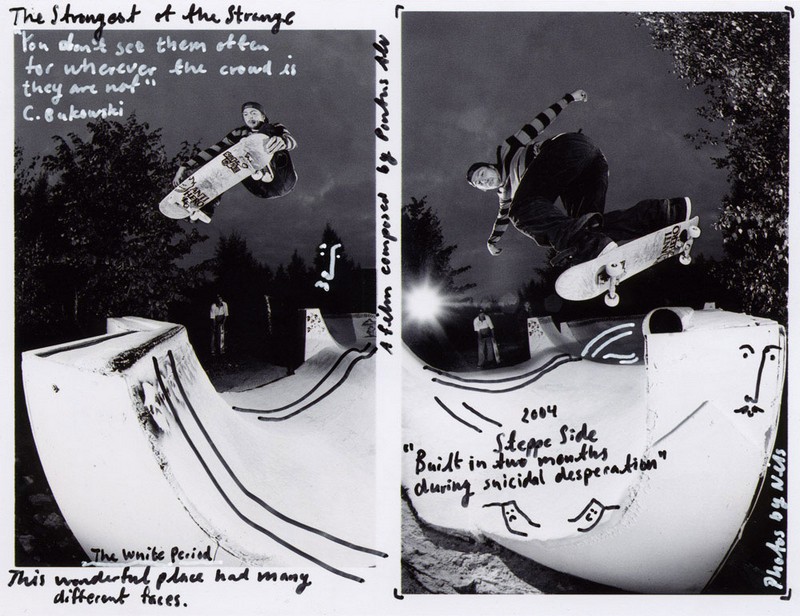 The Strongest of the Strange
"You don't see them often
for wherever the crowd is
they are not"
C. Bukowski
A film composed by Pontus Alv
The White Period
This wonderful place had many
different faces.
2004
Steppe Side
"Built in two months
during suicidal desperation"
Photos by Nils